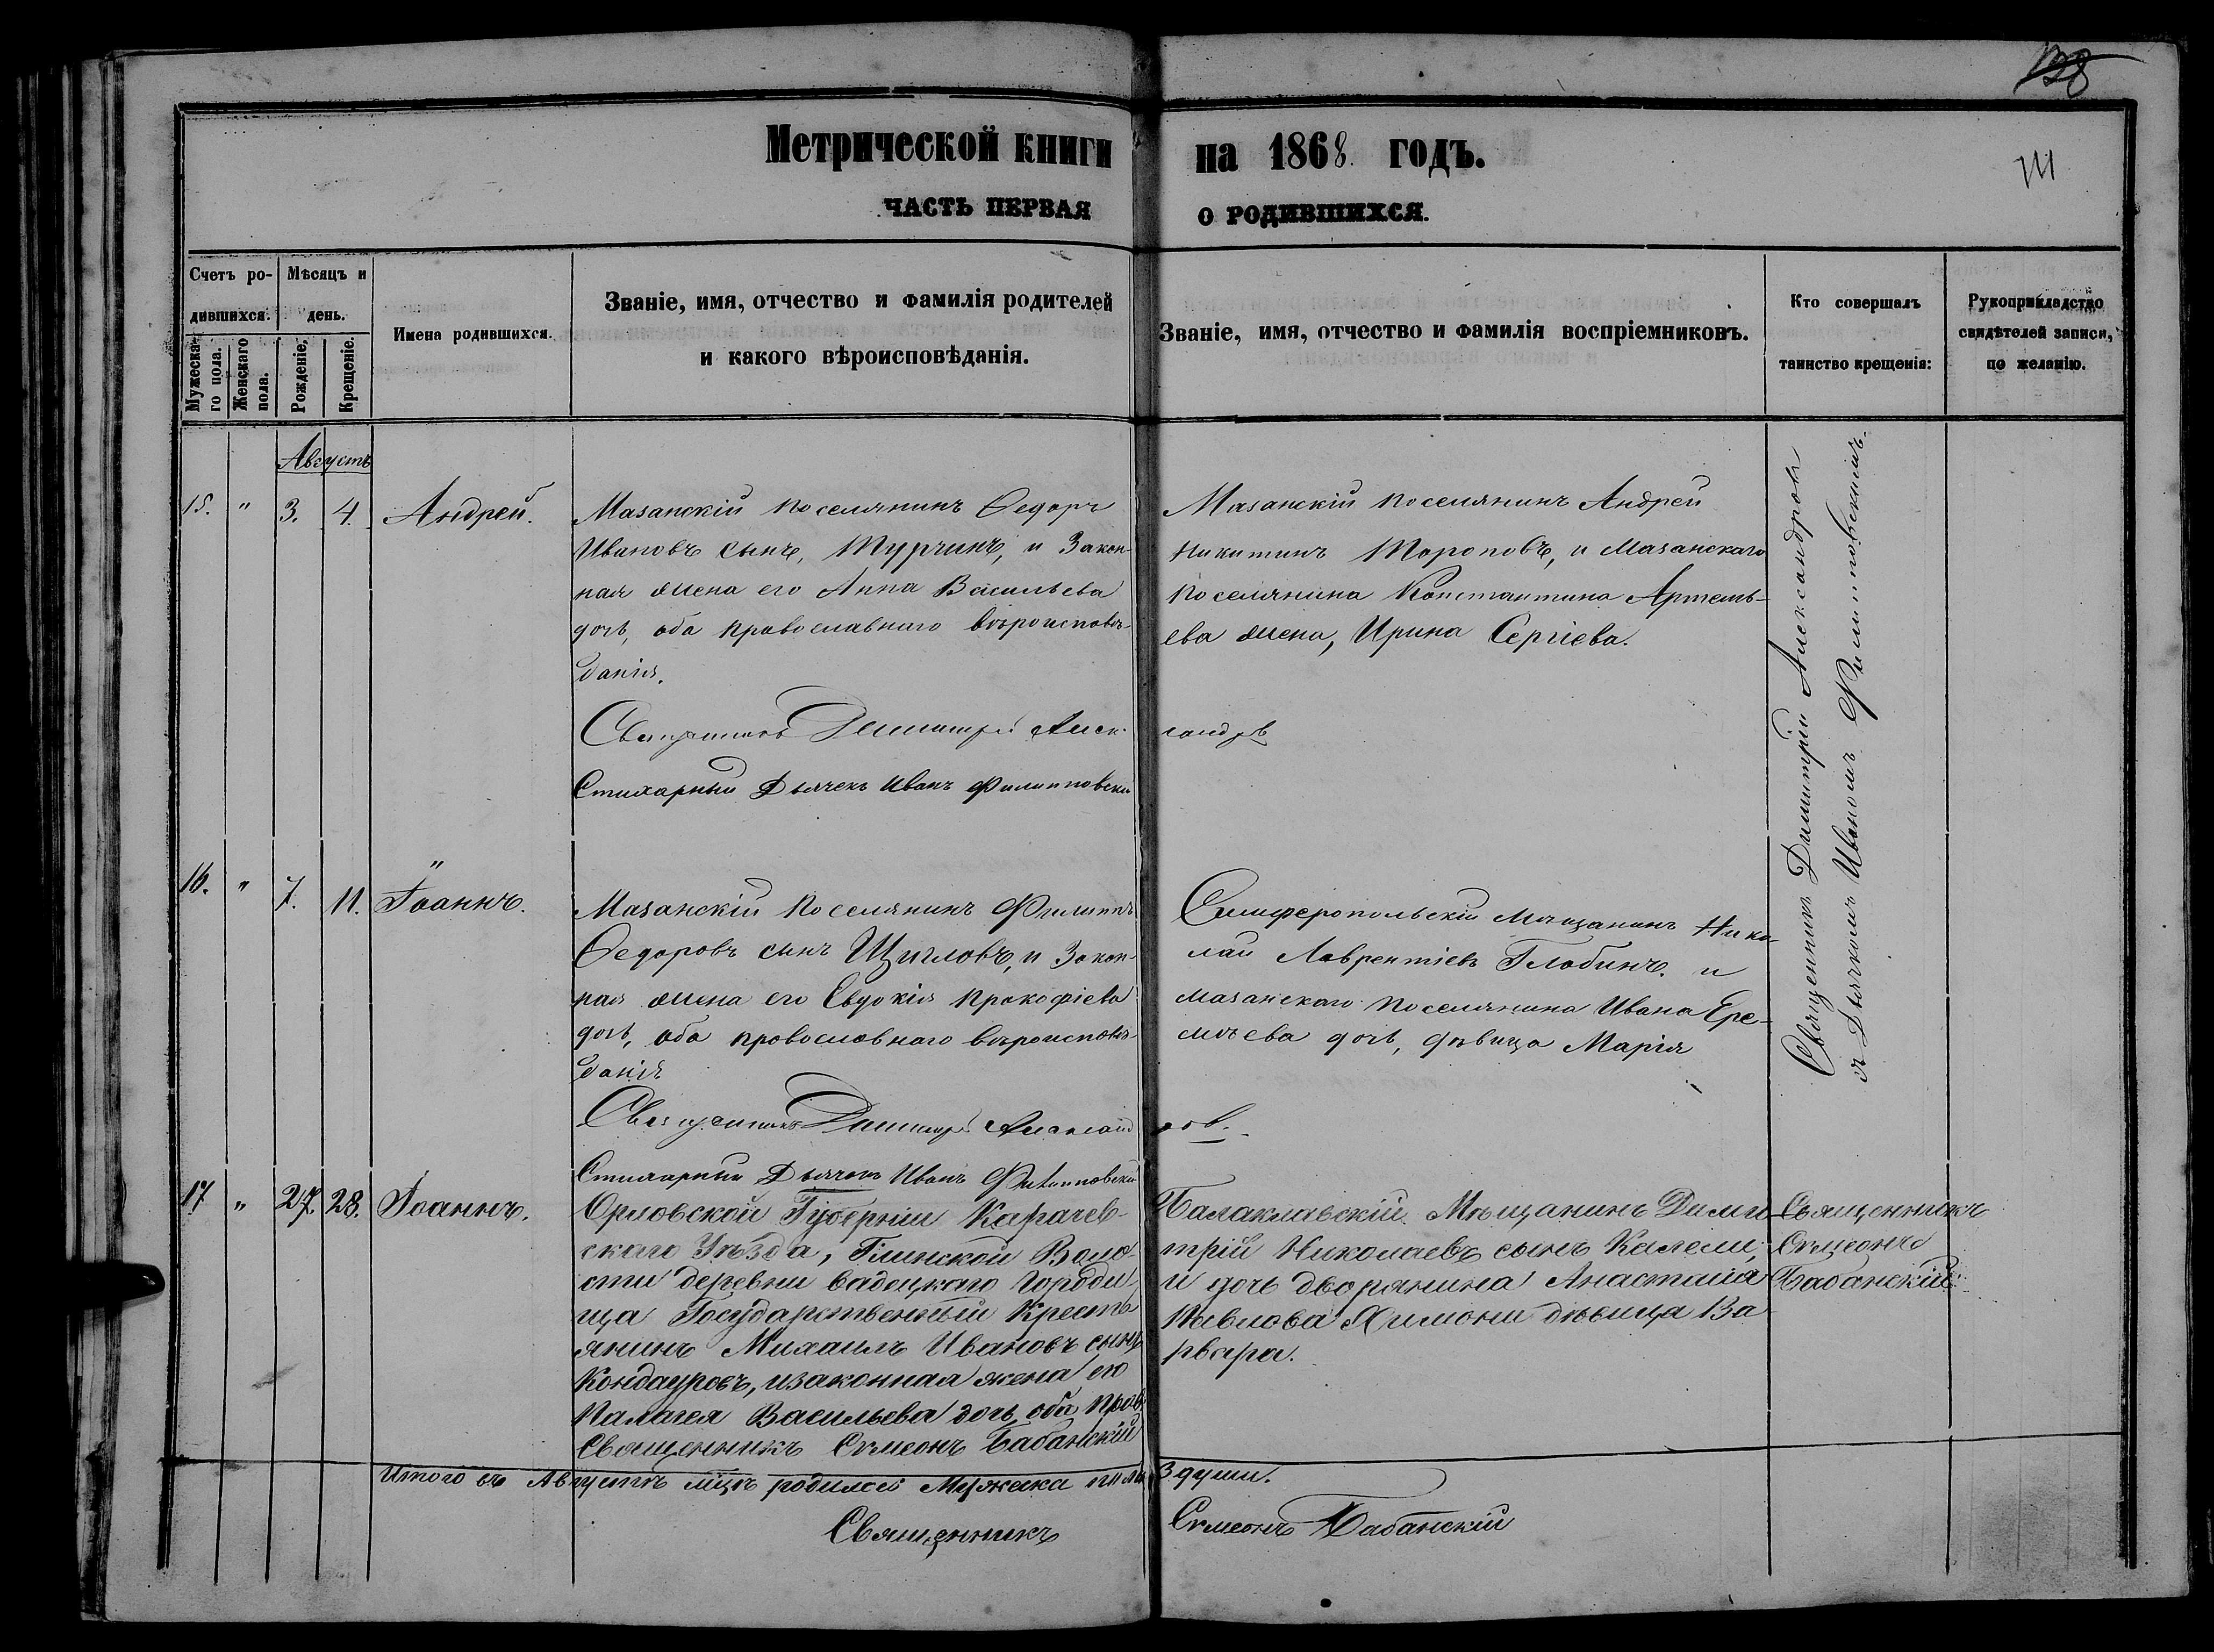 138
Метрической книги на 1868 годъ.
111
ЧАСТЬ ПЕРВАЯ О РОДИВШИХСЯ.
Счетъ ро-
дившихся.
Мужеска-
го пола.
Женскаго
пола.
Мѣсяцъ и
день.
Рожденіе.
Крещеніе.
Имена родившихся.
Званіе, имя, отчество и фамилія родителей
и какого вѣроисповѣданія.
Званіе, имя, отчество и фамилія воспріемниковъ.
Кто совершалъ
таинство крещенія:
Рукоприкладство
свидѣтелей записи,
по желанію.
Августъ
15. " 3. 4. Андрей.
Мазанскій поселянинъ Ѳедоръ
Ивановъ сынъ, Турчинъ, и закон-
ная жена его Анна Васильева
дочь, оба православнаго вѣроисповѣ-
данія.
Священникъ Димитрій Александровъ
Стихарный Дьячекъ Иванъ Филипповскій
Мазанскій поселянинъ Андрей
Никитинъ Тороповъ, и Мазанскаго
поселянина Константина Артемь-
ева жена, Ирина Сергіева.
Священникъ Димитрій Александровъ
съ Дьячкомъ Иваномъ Филипповскимъ.
16. " 7. 11. Іоаннъ.
Мазанскій поселянинъ Филиппъ
Ѳедоровъ сынъ Щигловъ, и закон-
ная жена его Евдокія Прокофіева
дочь, оба православнаго вѣроисповѣ-
данія
Священникъ Димитрій Александров.
Стихарный Дьячекъ Иванъ Филипповскій
Симферопольскій Мѣщанинъ Нико-
лай Лаврентіевъ Глобинъ. и
мазанскаго поселянина Ивана Ере-
мѣева дочь, дѣвица Марія
17 " 27. 28. Іоаннъ.
Орловской Губерніи Карачев-
скаго Уѣзда, Глинской Воло
сти деревни Городи
ща Государственный Кресть
янинъ Михаилъ Ивановъ сынъ
Кондауровъ, изаконная жена его
Палагея Васильева дочь, оба прав.
Священникъ Симеонъ Бабанскій
Балаклавскій Мѣщанинъ Дими
трій Николаевъ сынъ
и дочь дворянина Анастасія
Павлова Химони дѣвица Ва
рвара.
Священникъ
Симеонъ
Бабанскій
Итого въ Августѣ мцѣ родилось Мужеска пола 3 души.
Священникъ Симеонъ Бабанскій